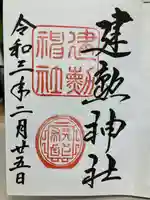 建勲神社
建勲
神社
令和三年二月廿五日